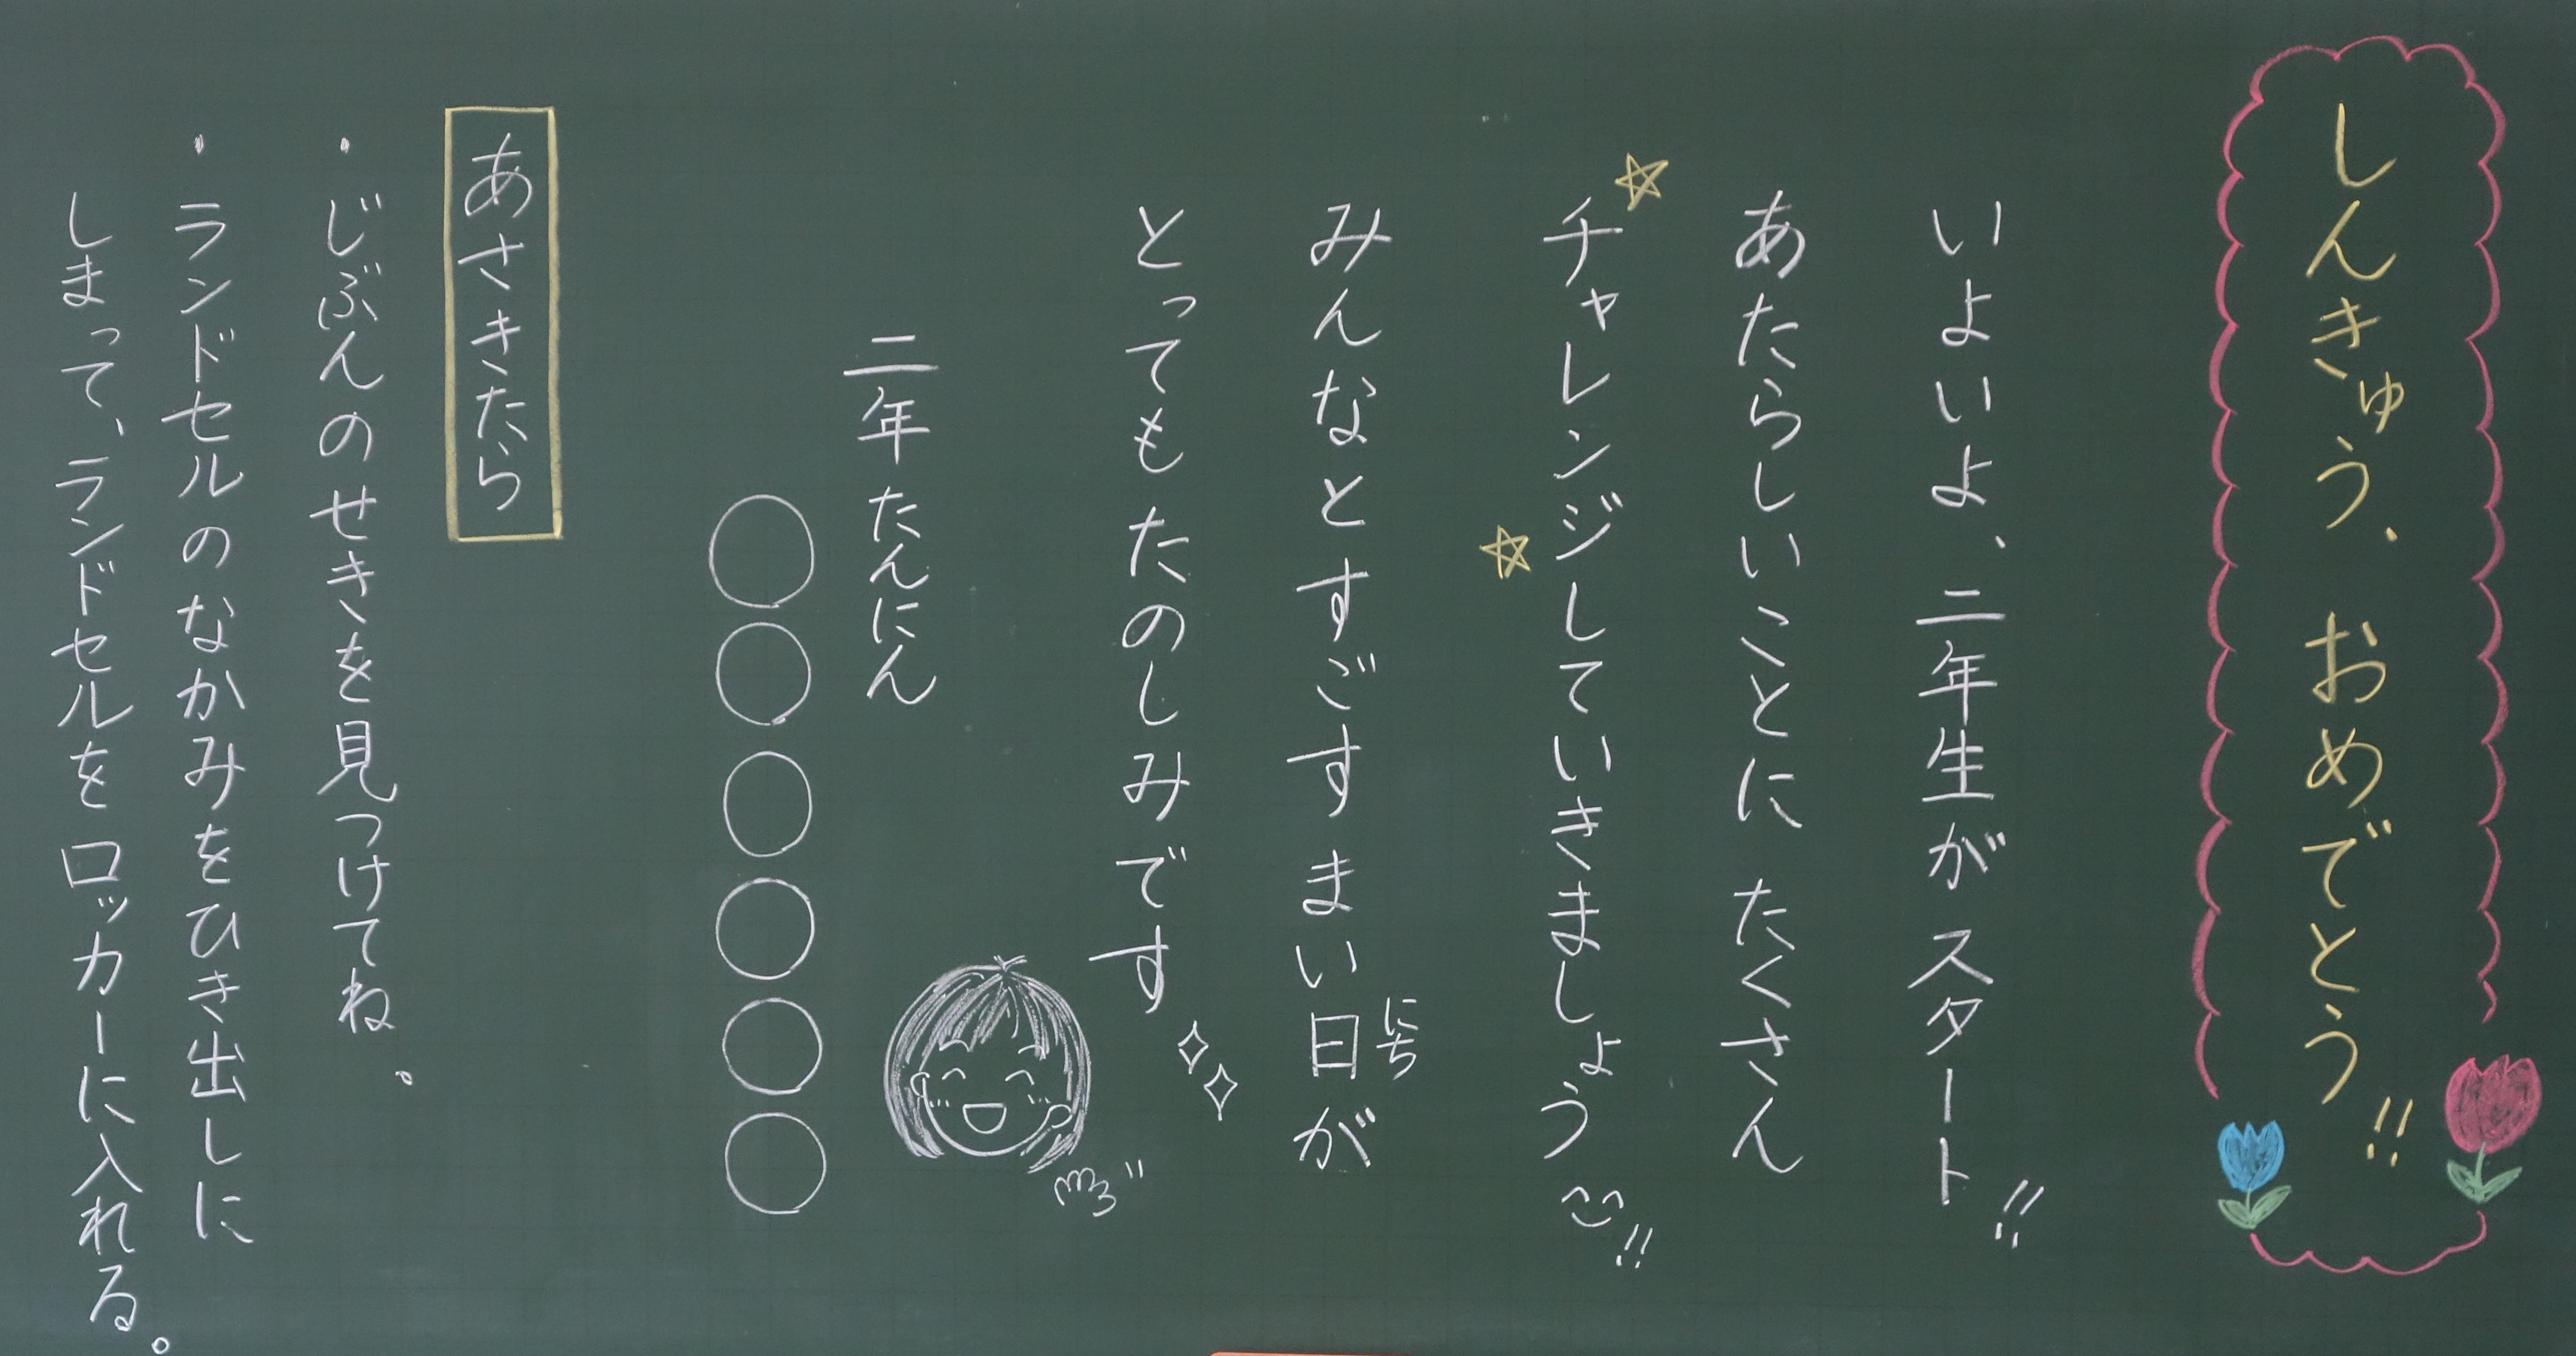 しんきゅう、おめでとう!!
いよいよ、二年生がスタート!!
あたらしいことに たくさん
チャレンジしていきましょう!!
みんなとすごすまい日が
にち
とってもたのしみです
二年 たんにん
○○○○○○
あさきたら
・じぶんのせきを見つけてね。
・ランドセルのなかみをひき出しに
しまって、ランドセルをロッカーに入れる。